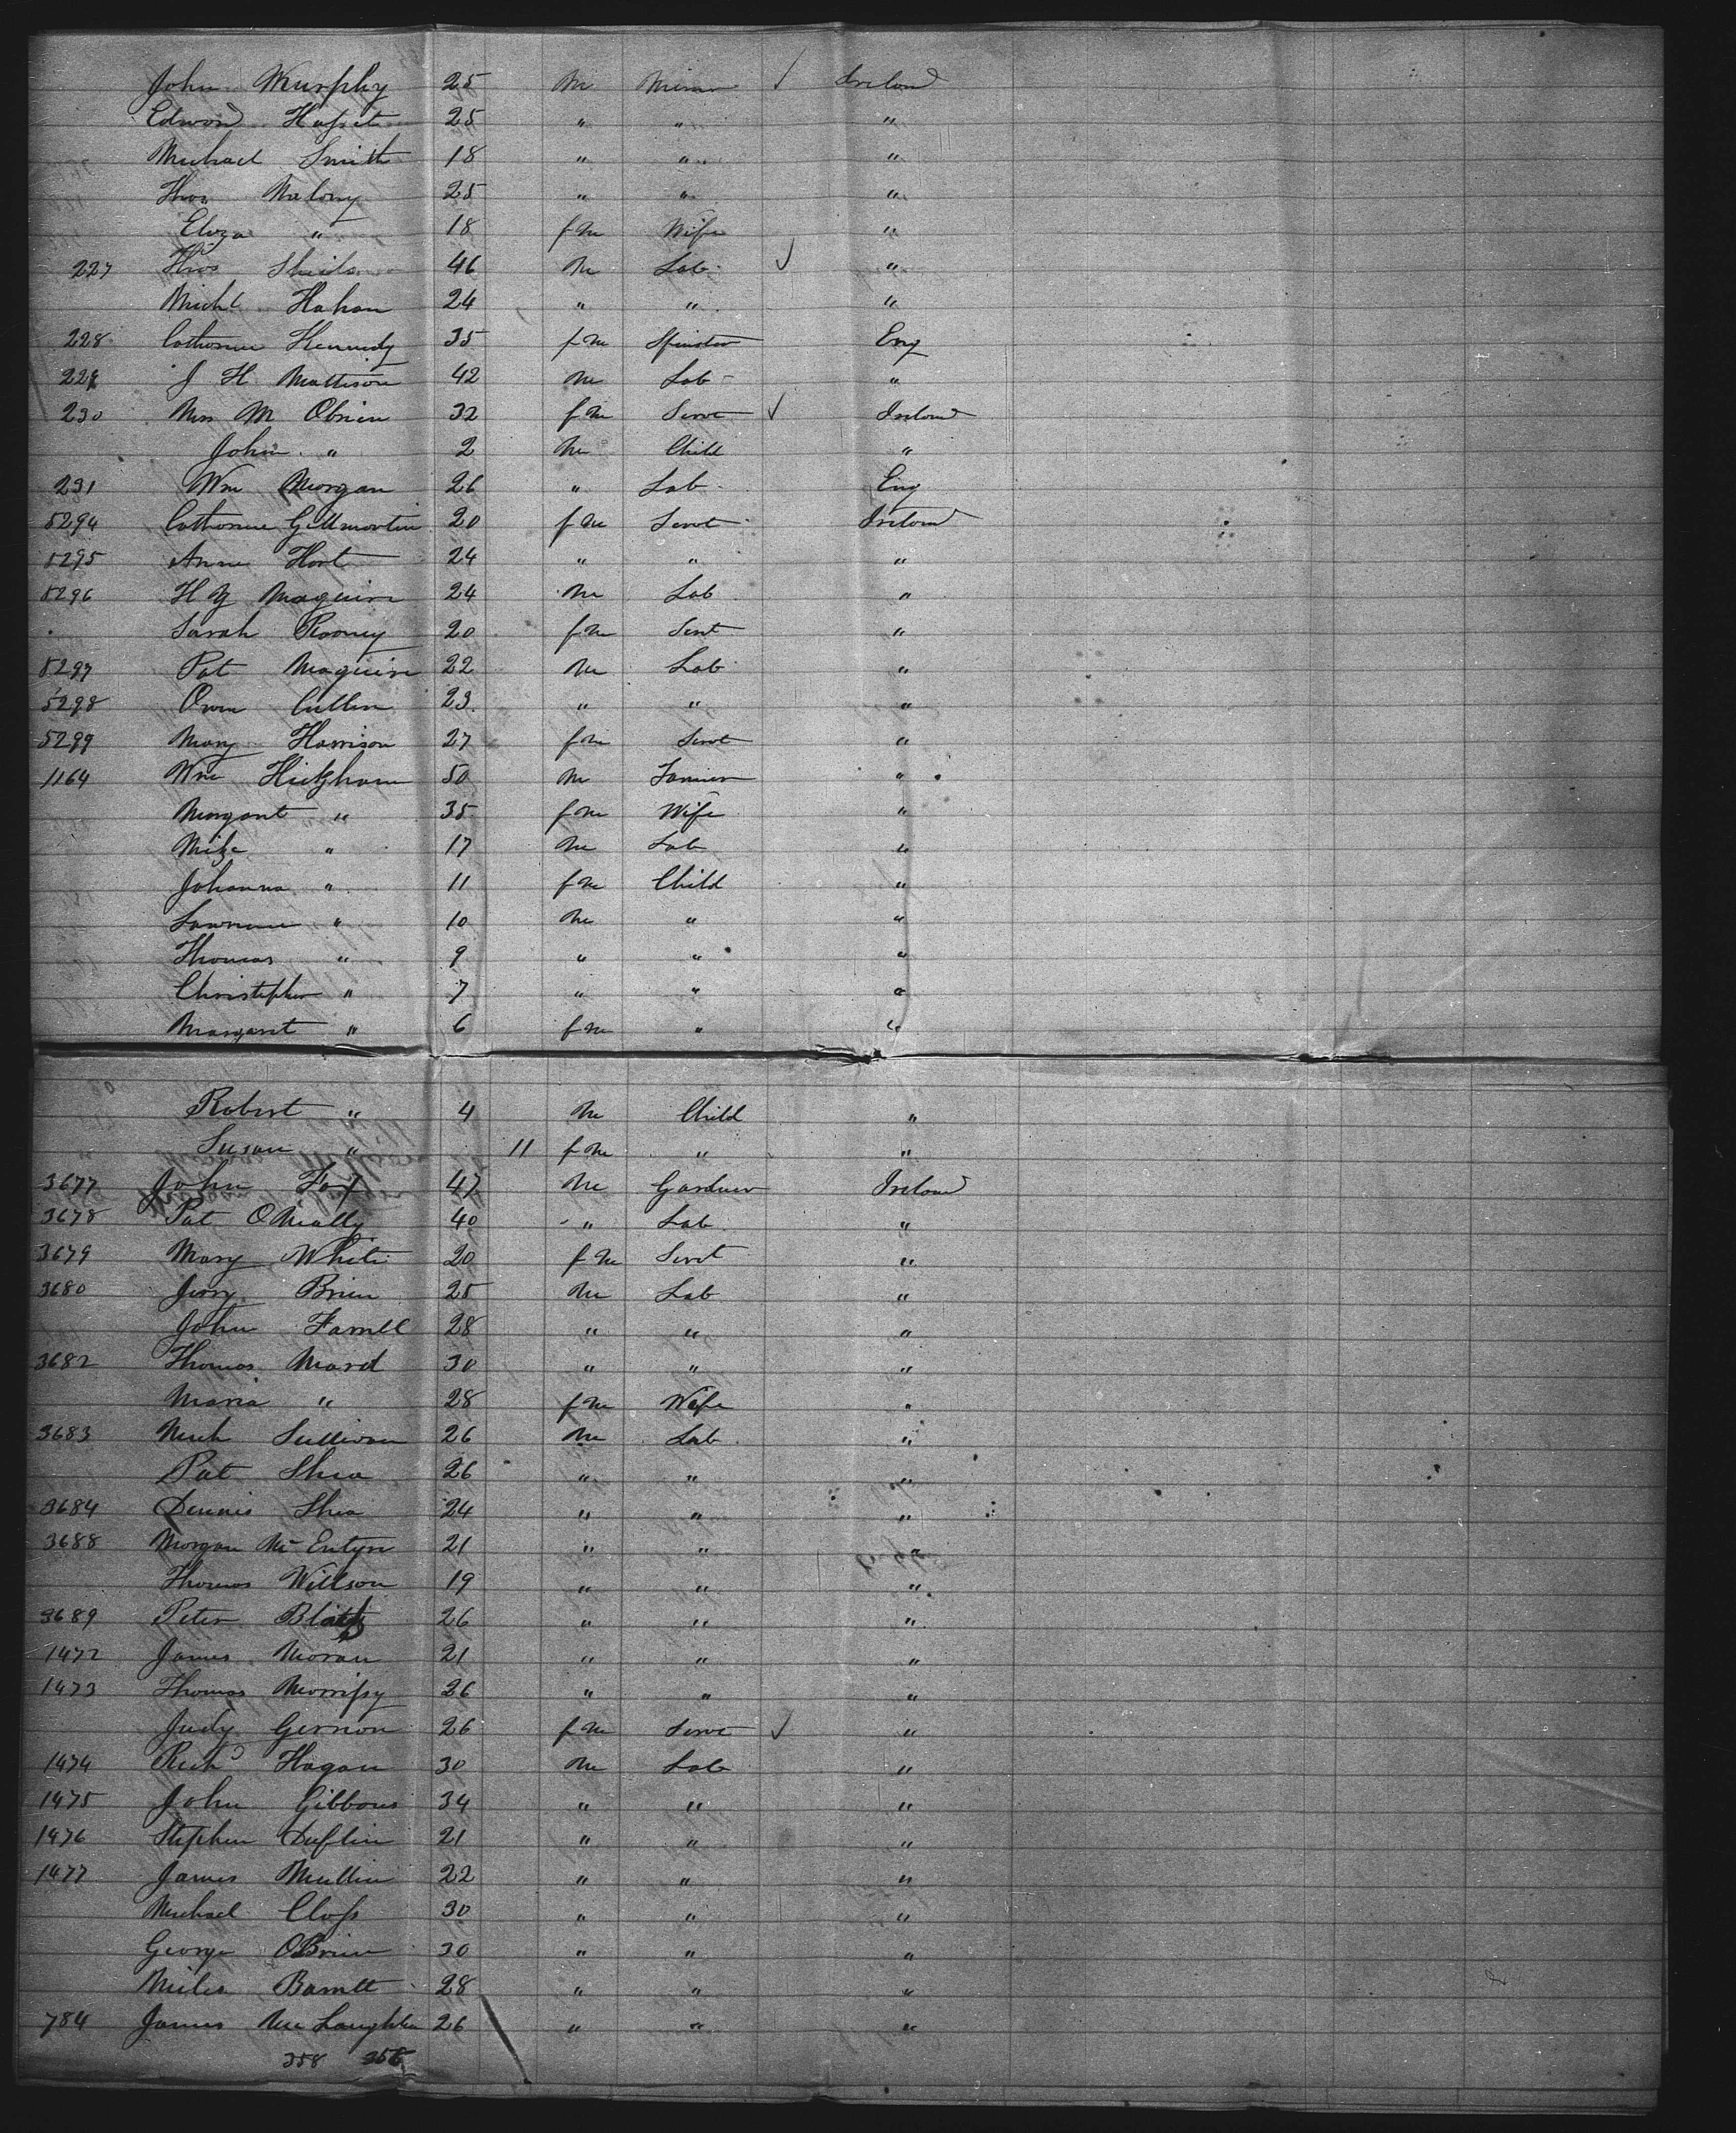 John Murphy 25 M Miner ✓ Ireland
Edward Hasset 25 " " "
Michael Smith 18 " " "
Thos Malony 25 " " "
Eliza " 18 f m Wife "
227 Thos Sheils 46 M Lab ✓ "
Michl Hahan 24 " " "
228 Catherine Kennedy 35 f m Spinster Eng
229 J H Mattison 42 M Lab "
230 Mrs M Obrien 32 f m Servt ✓ Ireland
John " 2 M Child "
231 Wm Morgan 26 " Lab Eng
5294 Catherine Gillmartin 20 f m Servt Ireland
5295 Anne Hart 24 " " "
5296 H Maguire 24 M Lab "
Sarah Rooney 20 f m Servt "
5297 Pat Maguire 22 M Lab "
5298 Owen Cullen 23 " " "
5299 Mary Harrison 27 f m Servt "
1164 Wm 50 M Farmer "
Margaret " 35 f m Wife "
Mike " 17 M Lab "
Johanna " 11 f m Child "
Lawrence " 10 M " "
Thomas " 9 " " "
Christopher " 7 " " "
Margaret " 6 f m " "
Robert " 4 M Child "
Susan " 11 f m " "
3677 John Fox 47 M Gardner Ireland
3678 Pat O Nially 40 " Lab "
3679 Mary White 20 f m Servt "
3680 Jerry Brien 25 M Lab "
John Farrell 28 " " "
3682 Thomas Ward 30 " " "
Maria " 28 f m Wife "
3683 Mich Sullivan 26 M Lab "
Pat Shea 26 " " "
3684 Dennis Shea 24 " " "
3688 Morgan Mc Entyre 21 " " "
Thomas Willson 19 " " "
3689 Peter 26 " " "
1472 James Moran 21 " " "
1473 Thomas Morrissy 26 " " "
Judy Gernon 26 f m Servt ✓ "
1474 Richd Hagan 30 M Lab "
1475 John Gibbons 34 " " "
1476 Stephen Duflin 21 " " "
1477 James Mullin 22 " " "
Michael Closs 30 " " "
George OBrien 30 " " "
Miles Barrett 28 " " "
784 James Mc Laughlin 26 " " "
358 356